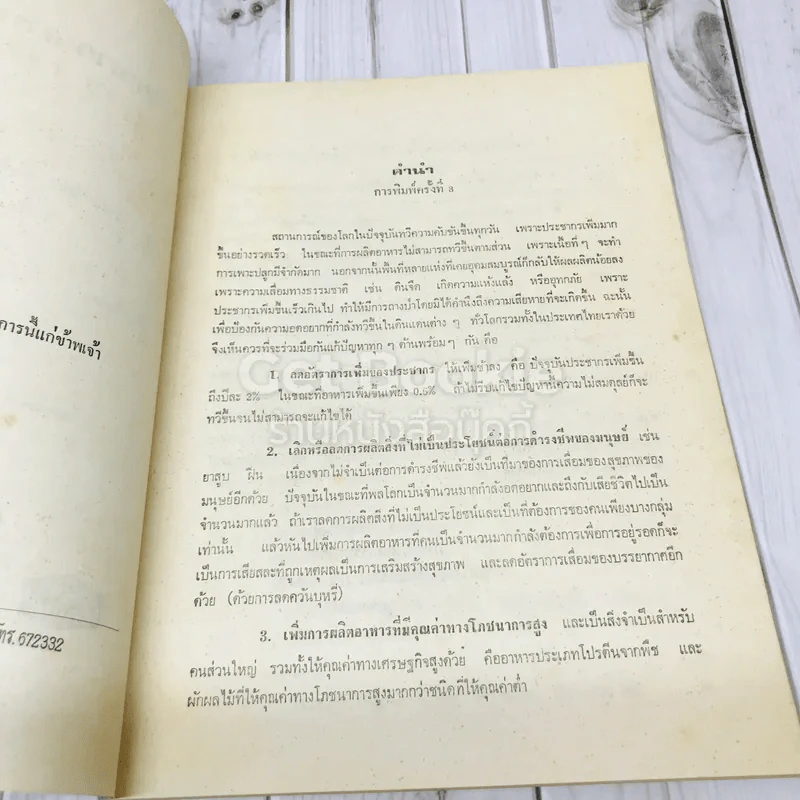 การนี้แก่ข้าพเจ้า
โทร. 672332
คำนำ
การพิมพ์ครั้งที่ 3
สถานการณ์ของโลกในปัจจุบันทวีความคับขันขึ้นทุกวัน เพราะประชากรเพิ่มมาก
ขึ้นอย่างรวดเร็ว ในขณะที่การผลิตอาหารไม่สามารถทวีขึ้นตามส่วน เพราะเนื้อที่ๆ จะทำ
การเพาะปลูกมีจำกัดมาก นอกจากนั้นพื้นที่หลายแห่งที่เคยอุดมสมบูรณ์ก็กลับให้ผลผลิตน้อยลง
เพราะความเสื่อมทางธรรมชาติ เช่น ดินจืด เกิดความแห้งแล้ง หรืออุทกภัย เพราะ
ประชากรเพิ่มขึ้นเร็วเกินไป ทำให้มีการถางป่าโดยมิได้คำนึงถึงความเสียหายที่จะเกิดขึ้น ฉะนั้น
เพื่อป้องกันความอดอยากที่กำลังทวีขึ้นในดินแดนต่าง ๆ ทั่วโลกรวมทั้งในประเทศไทยเราด้วย
จึงเห็นควรที่จะร่วมมือกันแก้ปัญหาทุก ๆ ด้านพร้อม ๆ กัน คือ
1. ลดอัตราการเพิ่มของประชากร ให้เพิ่มช้าลง คือ ปัจจุบันประชากรเพิ่มขึ้น
ถึงปีละ 2% ในขณะที่อาหารเพิ่มขึ้นเพียง 0.5% ถ้าไม่รีบแก้ไขปัญหานี้ความไม่สมดุลย์ก็จะ
ทวีขึ้นจนไม่สามารถจะแก้ไขได้
Get Booky
ร้านหนังสือบุ๊คกี้
2. เลิกหรือลดการผลิตสิ่งที่ไม่เป็นประโยชน์ต่อการดำรงชีพของมนุษย์ เช่น
ยาสูบ ฝิ่น เนื่องจากไม่จำเป็นต่อการดำรงชีพแล้วยังเป็นที่มาของการเสื่อมของสุขภาพของ
มนุษย์อีกด้วย ปัจจุบันในขณะที่พลโลกเป็นจำนวนมากกำลังอดอยากและถึงกับเสียชีวิตไปเป็น
จำนวนมากแล้ว ถ้าเราลดการผลิตสิ่งที่ไม่เป็นประโยชน์และเป็นที่ต้องการของคนเพียงบางกลุ่ม
เท่านั้น แล้วหันไปเพิ่มการผลิตอาหารที่คนเป็นจำนวนมากกำลังต้องการเพื่อการอยู่รอดก็จะ
เป็นการเสียสละที่ถูกเหตุผลเป็นการเสริมสร้างสุขภาพ และลดอัตราการเสื่อมของบรรยากาศอีก
ด้วย (ด้วยการลดควันบุหรี่)
3. เพิ่มการผลิตอาหารที่มีคุณค่าทางโภชนาการสูง และเป็นสิ่งจำเป็นสำหรับ
คนส่วนใหญ่ รวมทั้งให้คุณค่าทางเศรษฐกิจสูงด้วย คืออาหารประเภทโปรตีนจากพืช และ
ผักผลไม้ที่ให้คุณค่าทางโภชนาการสูงมากกว่าชนิดที่ให้คุณค่าต่ำ